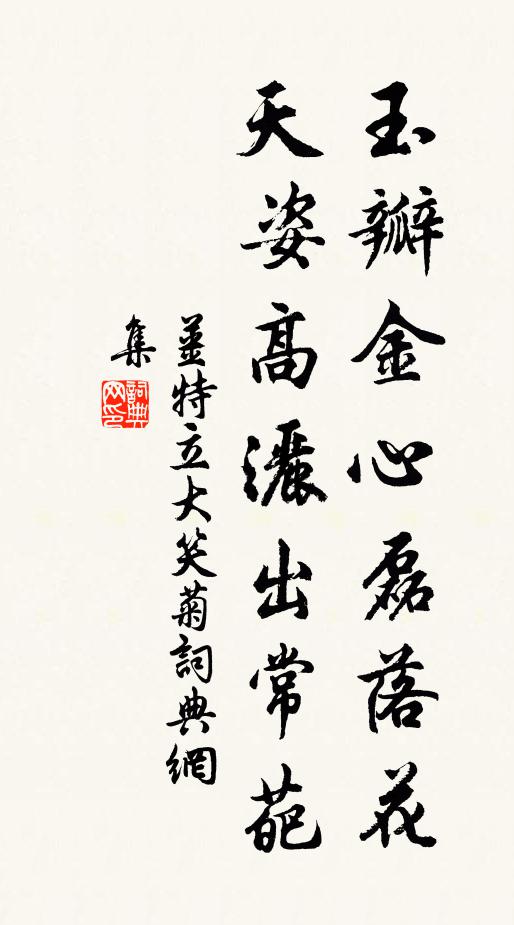 玉瓣金心磊落花
天姿高灑出常葩
薑特立大笑菊詞典網
集
詞典网印